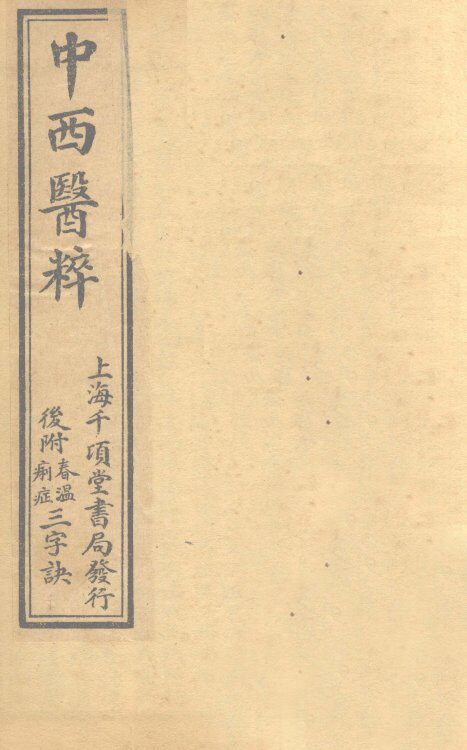 中西醫粹
上海千頃堂書局發行
後附春溫痢症三字訣